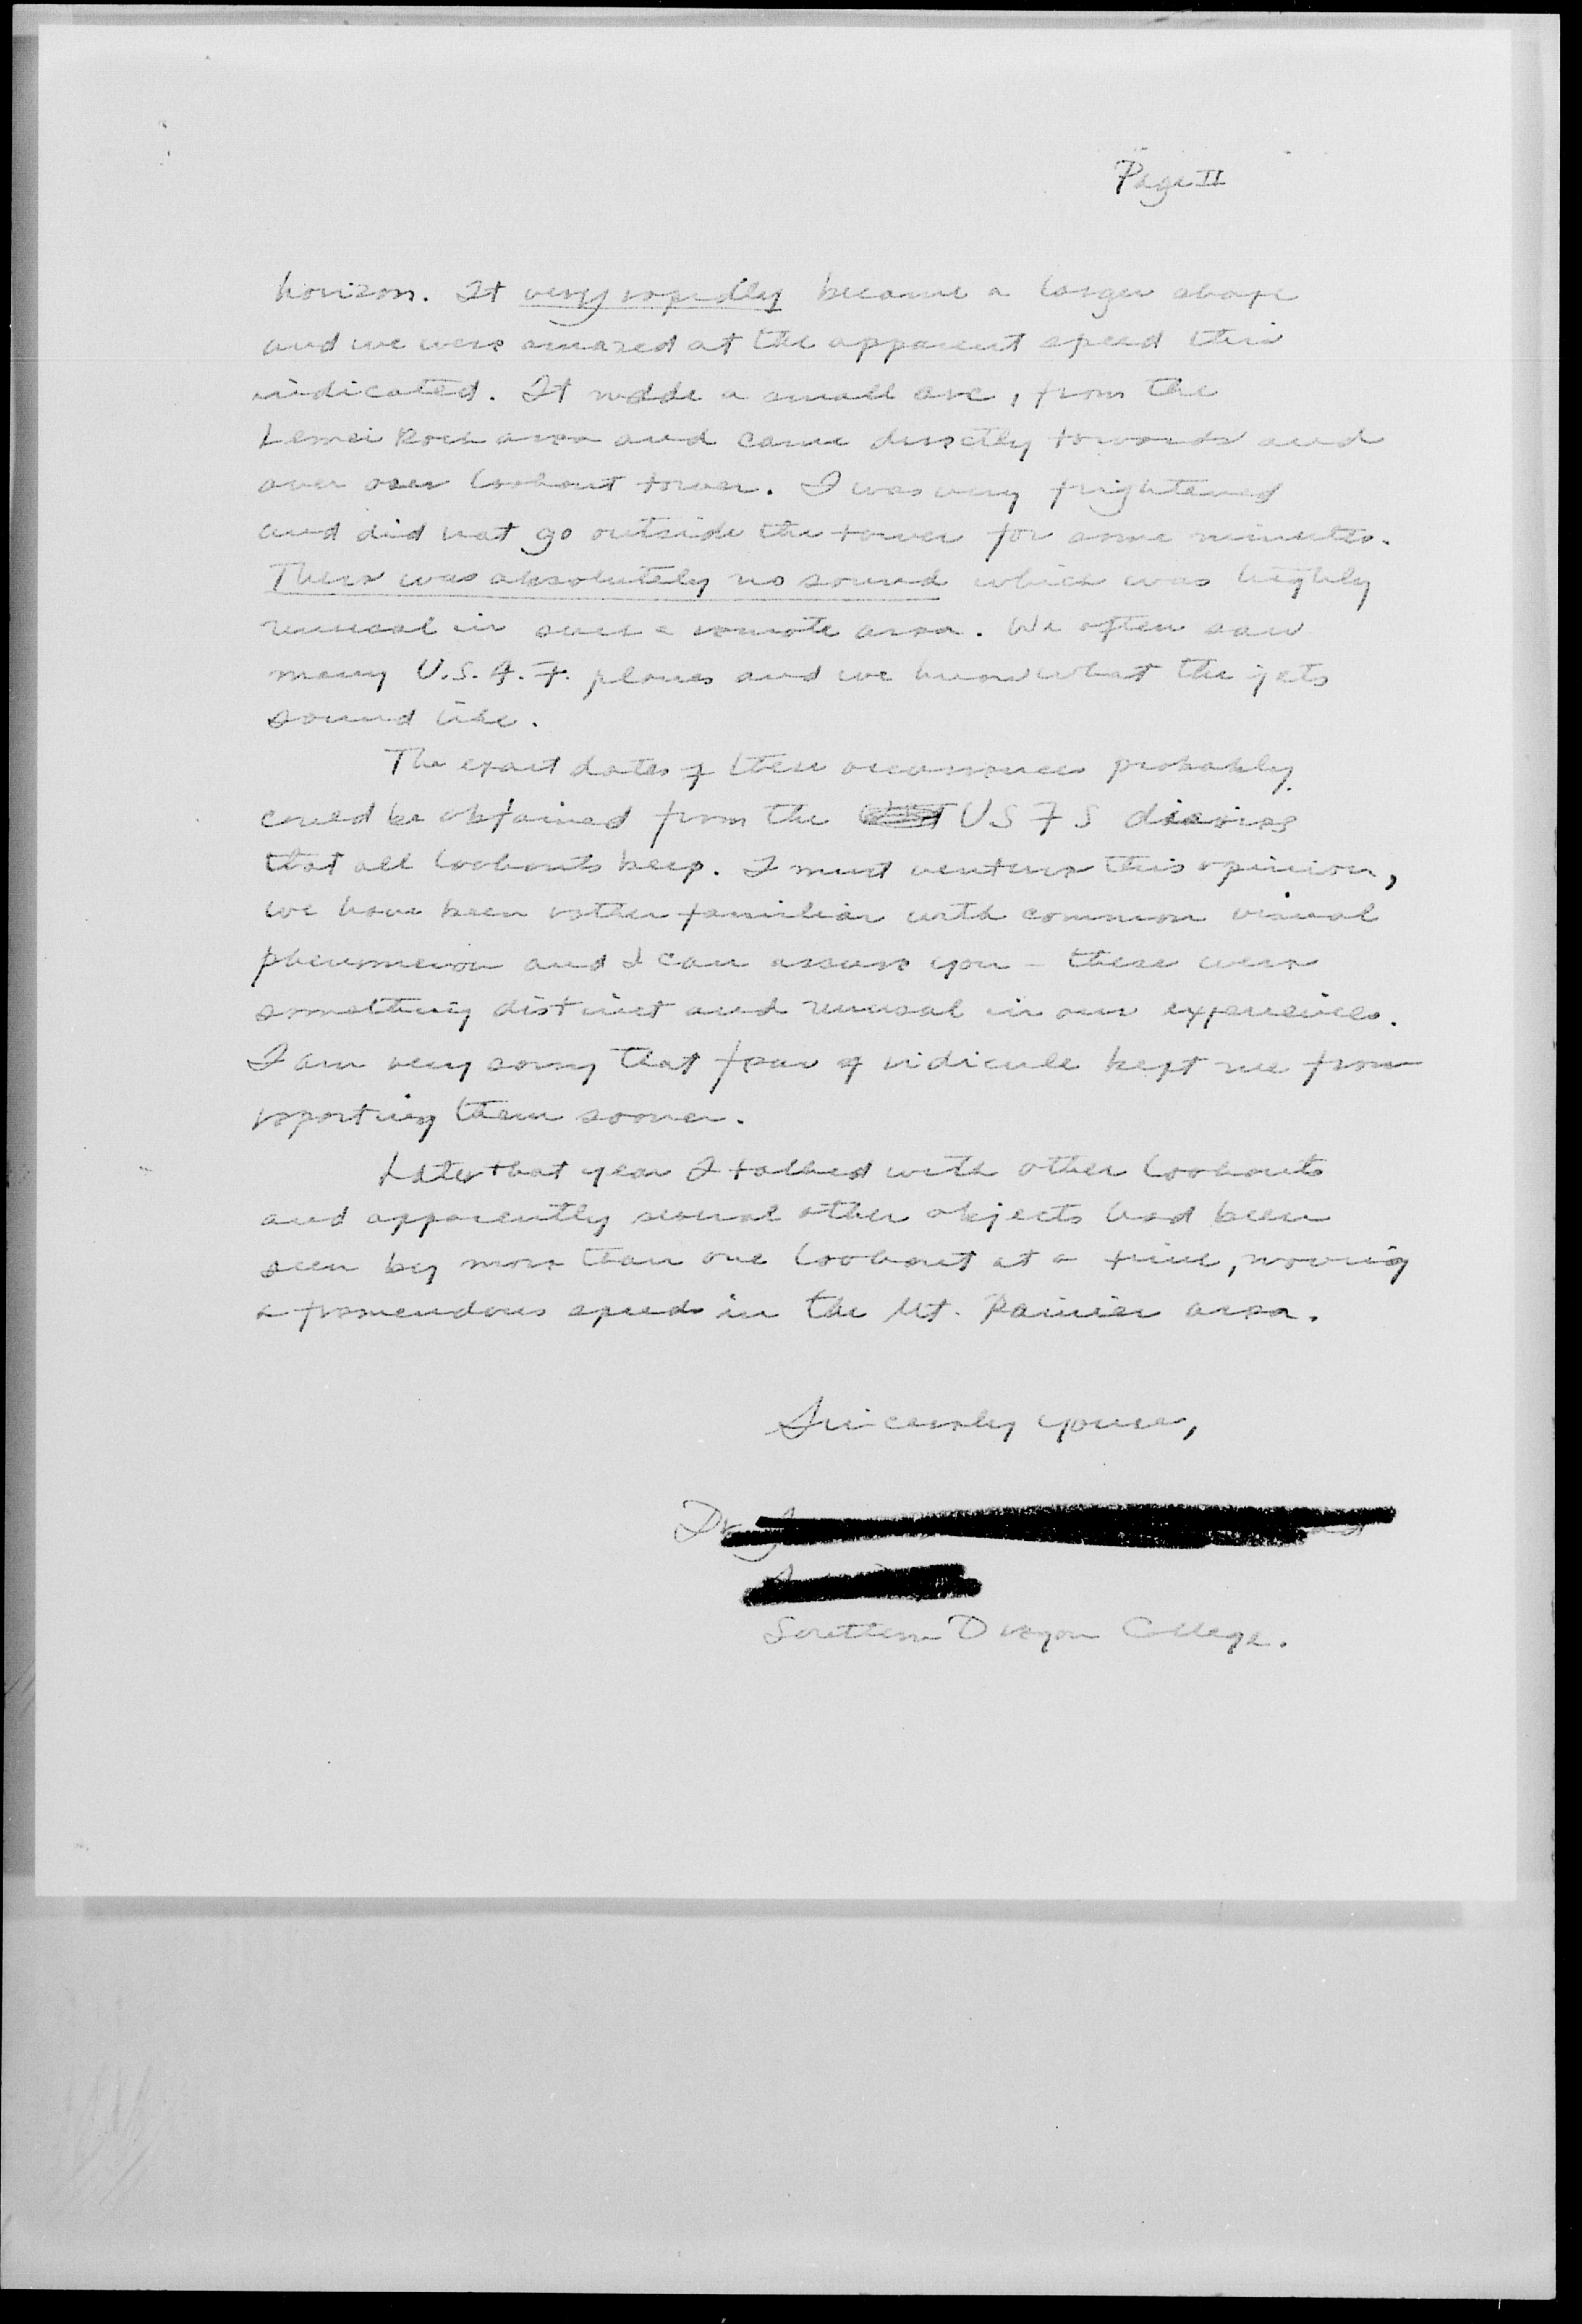 Page II
horizon. It very rapidly became a larger shape
and we were amazed at the apparent speed this
indicated. It made a small arc, from the
Lemei Rock area and came directly towards and
over our lookout tower. I was very frightened
and did not go outside the tower for some minutes.
There was absolutely no sound which was highly
unusal in such a remote area. We often saw
many U.S.A.F. planes and we know what the jets
sound like.
The exact dates of these occurrences probably
could be obtained from the USFS diaries
that all lookouts keep. I must venture this opinion,
we have been rather familiar with common visual
phenomenon and I can assure you - these were
something distinct and unusal in our experiences.
I am very sorry that fear of ridicule kept me from
reporting them sooner.
Later that year I talked with other lookouts
and apparently several other objects had been
seen by more than one lookout at a time, moving
a tremendous speeds in the Mt. Rainier area.
Sincerely yours,
Dr.
Southern Oregon College.